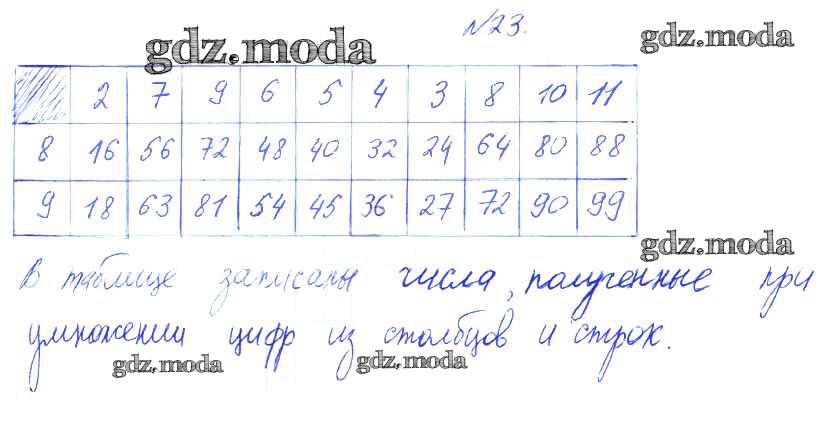 №23.
gdz.moda gdz.moda
2 7 9 6 5 4 3 8 10 11
8 16 56 72 48 40 32 24 64 80 88
9 18 63 81 54 45 36 27 72 90 99
gdz.moda
В таблице записаны числа, полученные при
умножении цифр из столбцов и строк.
gdz.moda gdz.moda